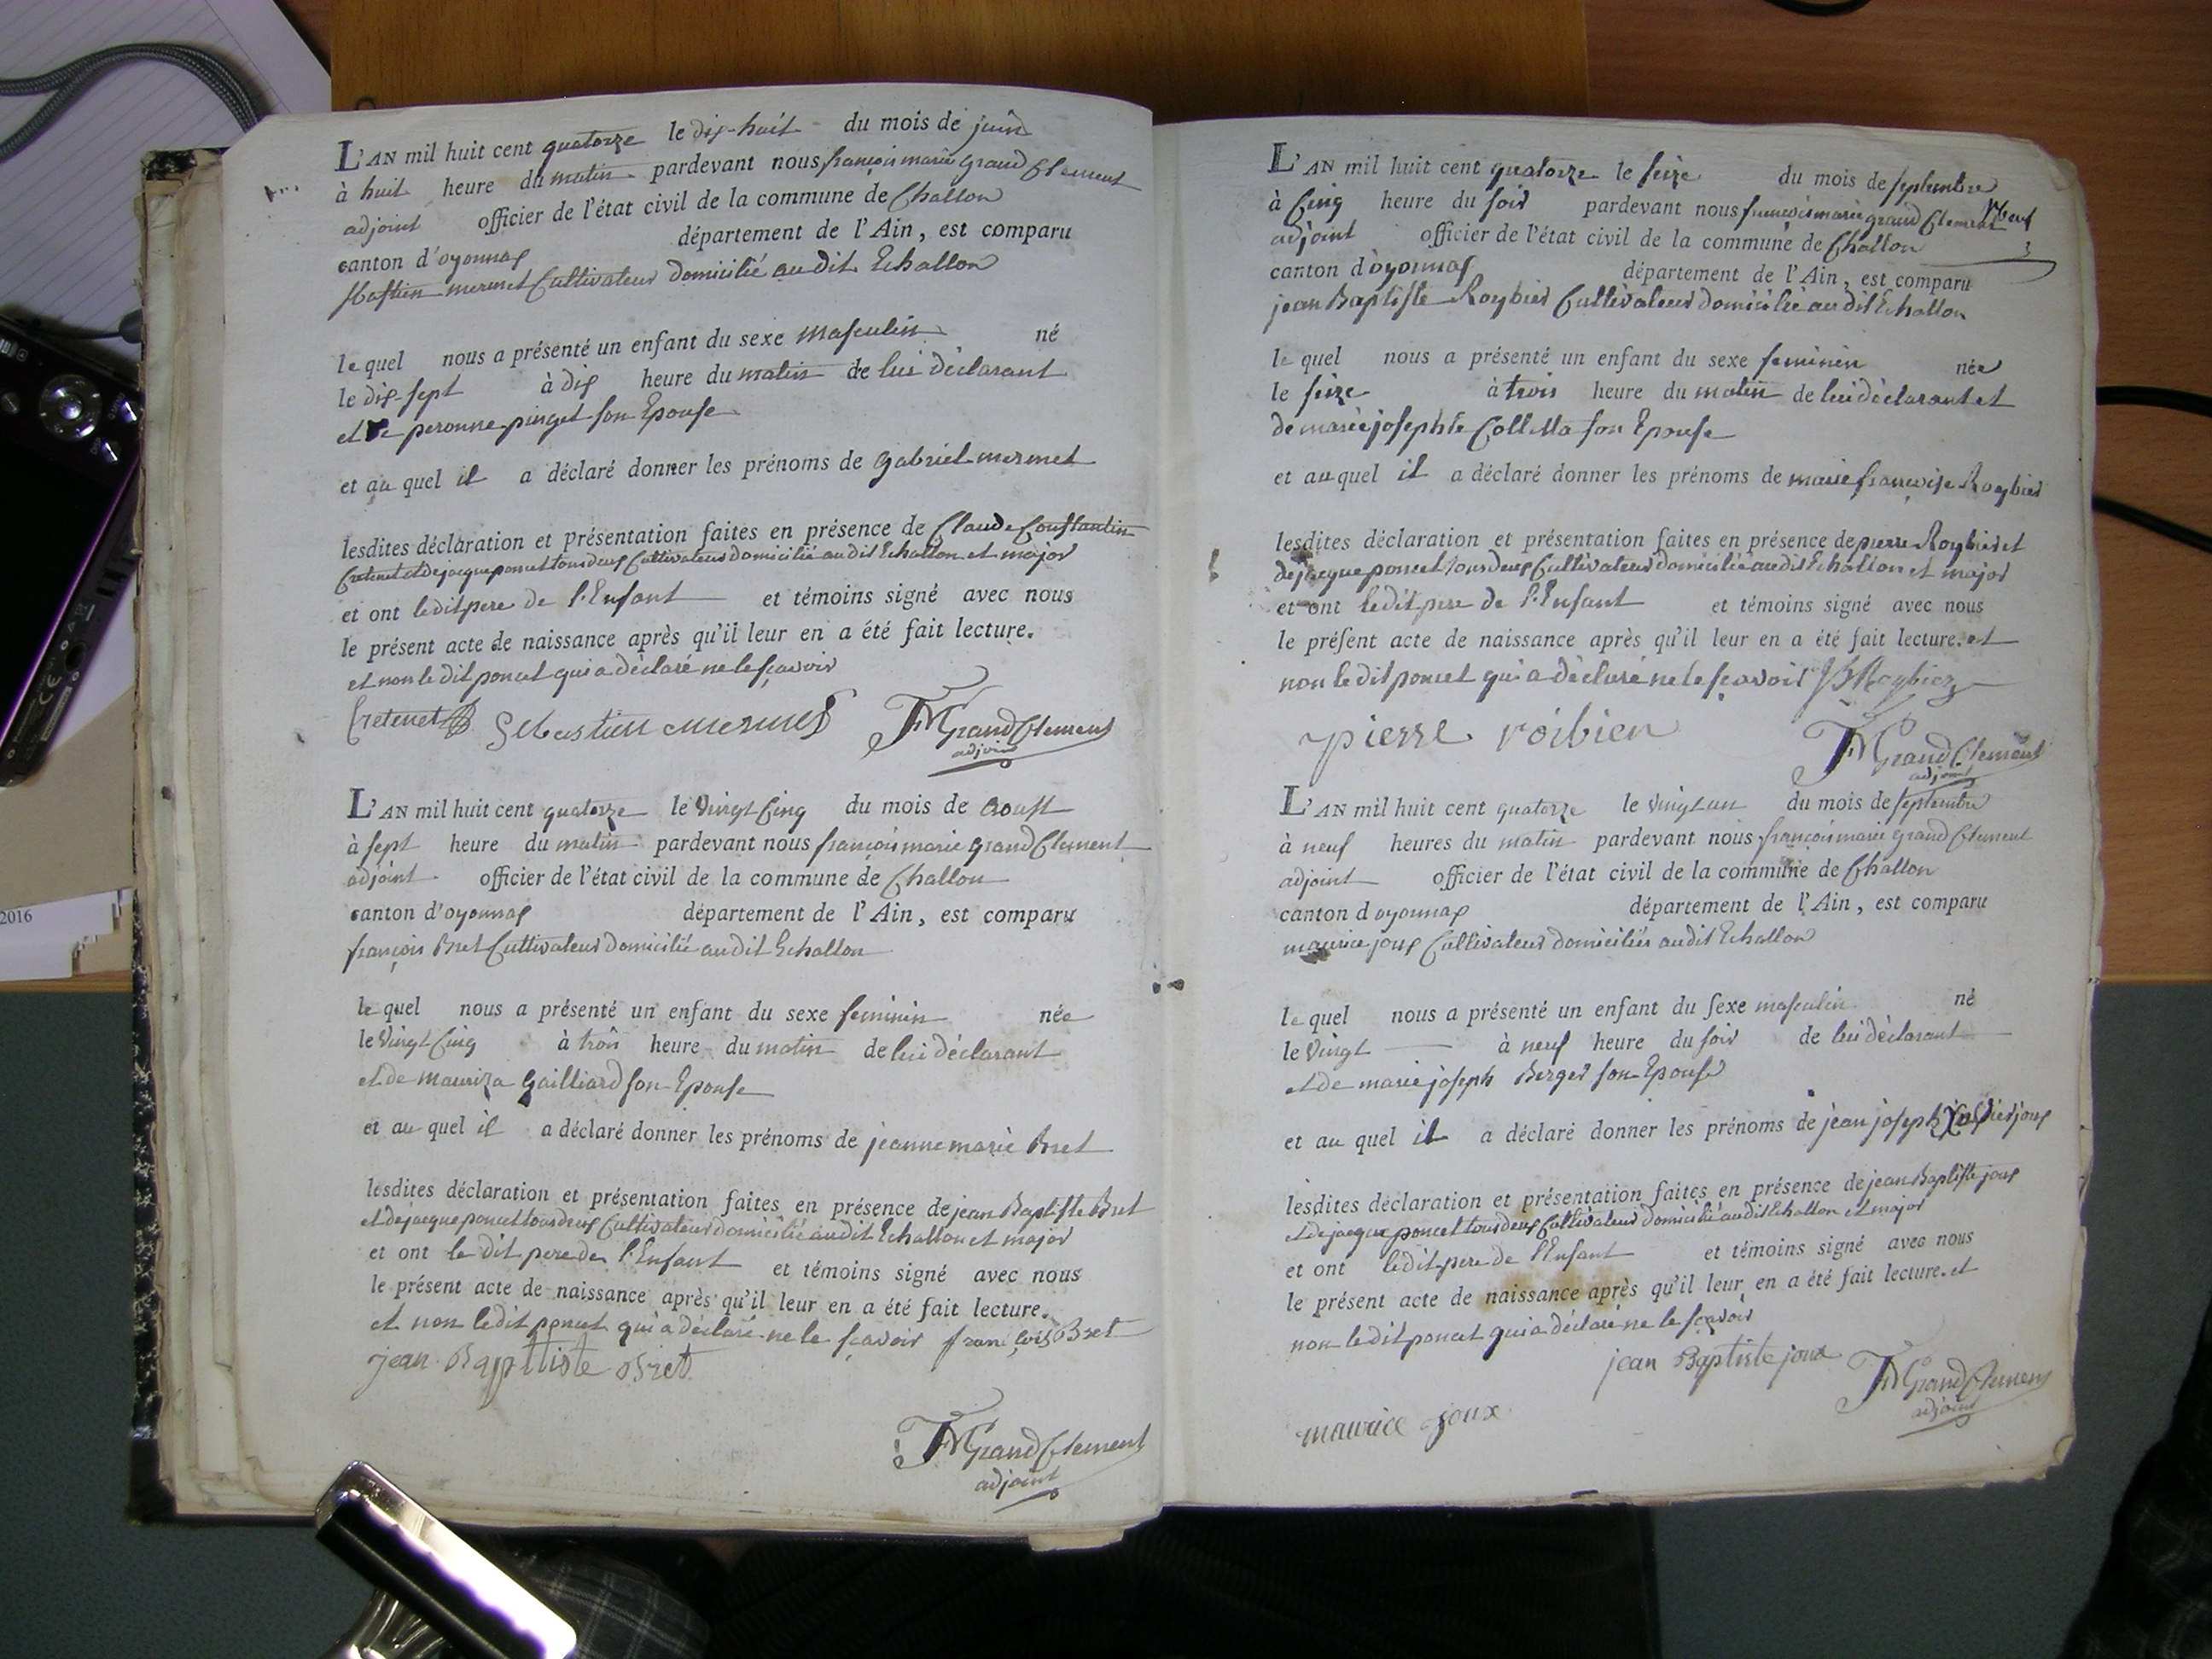 L'AN mil huit cent quatorze le dix-huit du mois de juin
à huit heure du matin pardevant nous françois marie grand Clement
adjoint officier de l'état civil de la commune de Challon
canton d'oyonnax département de l'Ain, est comparu
Sbastien mermet Cultivateur domicilié au dit Echallon
le quel nous a présenté un enfant du sexe masculin né
le dix-sept à dix heure du matin de lui déclarant
et de peronne pinget son Epouse
et au quel il a déclaré donner les prénoms de gabriel mermet
lesdites déclaration et présentation faites en présence de Claude Constantin
Cretenet et de jacque poncet tous deux Cultivateur domicilié au dit Echallon et major
et ont le dit pere de l'Enfant et témoins signé avec nous
le présent acte de naissance après qu'il leur en a été fait lecture.
et non le dit poncet qui a déclaré ne le sçavoir
Cretenet Sebastien mermet FM Grand Clement
adjoint
L'AN mil huit cent quatorze le vingt Cinq du mois de aoust
à sept heure du matin pardevant nous françois marie grand Clement
adjoint officier de l'état civil de la commune de Challon
canton d'oyonnax département de l'Ain, est comparu
françois Bret Cultivateur domicilié au dit Echallon
le quel nous a présenté un enfant du sexe feminin née
le vingt Cinq à trois heure du matin de lui déclarant
et de mauriza gailliard son Epouse
et au quel il a déclaré donner les prénoms de jeanne marie Bret
lesdites déclaration et présentation faites en présence de jean Baptiste Bret
et de jacque poncet tous deux Cultivateur domicilié au dit Echallon et major
et ont le dit pere de l'Enfant et témoins signé avec nous
le présent acte de naissance après qu'il leur en a été fait lecture.
et non le dit poncet qui a déclaré ne le sçavoir françois Bret
jean Bapttiste Bret
FM Grand Clement
adjoint
L'AN mil huit cent quatorze le seize du mois de septembre
à Cinq heure du soir pardevant nous françois marie grand Clement
adjoint officier de l'état civil de la commune de Challon
canton d'oyonnax département de l'Ain, est comparu
jean Baptiste Roybier Cultivateur domicilié au dit Echallon
le quel nous a présenté un enfant du sexe feminin née
le seize à trois heure du matin de lui déclarant et
de marie josephte Colletta son Epouse
et au quel il a déclaré donner les prénoms de marie françoise Roybier
lesdites déclaration et présentation faites en présence de pierre Roybier et
de jacque poncet tous deux Cultivateur domicilié au dit Echallon et major
et ont le dit pere de l'Enfant et témoins signé avec nous
le présent acte de naissance après qu'il leur en a été fait lecture. et
non le dit poncet qui a déclaré ne le sçavoir JB Roybier
pierre roibier
FM Grand Clement
adjoint
L'AN mil huit cent quatorze le vingt un du mois de septembre
à neuf heures du matin pardevant nous françois marie grand Clement
adjoint officier de l'état civil de la commune de Challon
canton d oyonnax département de l'Ain, est comparu
maurice joux Cultivateur domicilier au dit Echallon
le quel nous a présenté un enfant du sexe masculin né
le vingt à neuf heure du soir de lui déclarant
et de marie joseph Berger son Epouse
et au quel il a déclaré donner les prénoms de jean joseph joux
lesdites déclaration et présentation faites en présence de jean Baptiste joux
et de jacque poncet tous deux Cultivateur domicilié au dit Echallon et major
et ont le dit pere de l'Enfant et témoins signé avec nous
le présent acte de naissance après qu'il leur en a été fait lecture. et
non le dit poncet qui a déclaré ne le sçavoir
jean Baptiste joux FM Grand Clement
adjoint
maurice joux
2016